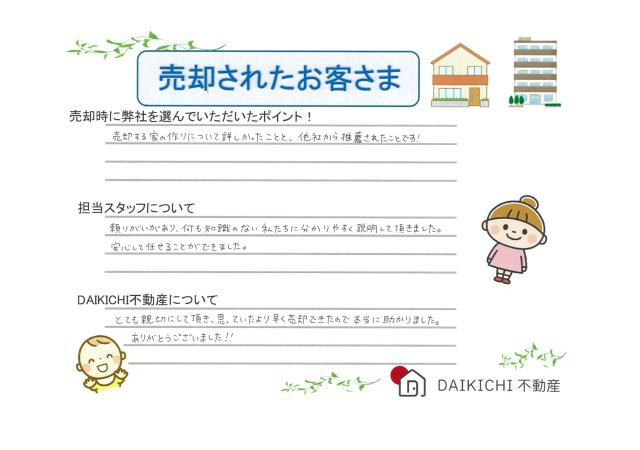 売却されたお客さま
売却時に弊社を選んでいただいたポイント！
売却する家の作りについて詳しかったことと、他社から推薦されたことです！
担当スタッフについて
頼りがいがあり、何も知識のない私たちに分かりやすく説明して頂きました。
安心して任せることができました。
DAIKICHI不動産について
とても親切にして頂き、思っていたより早く売却できたので本当に助かりました。
ありがとうございました!!
DAIKICHI 不動産